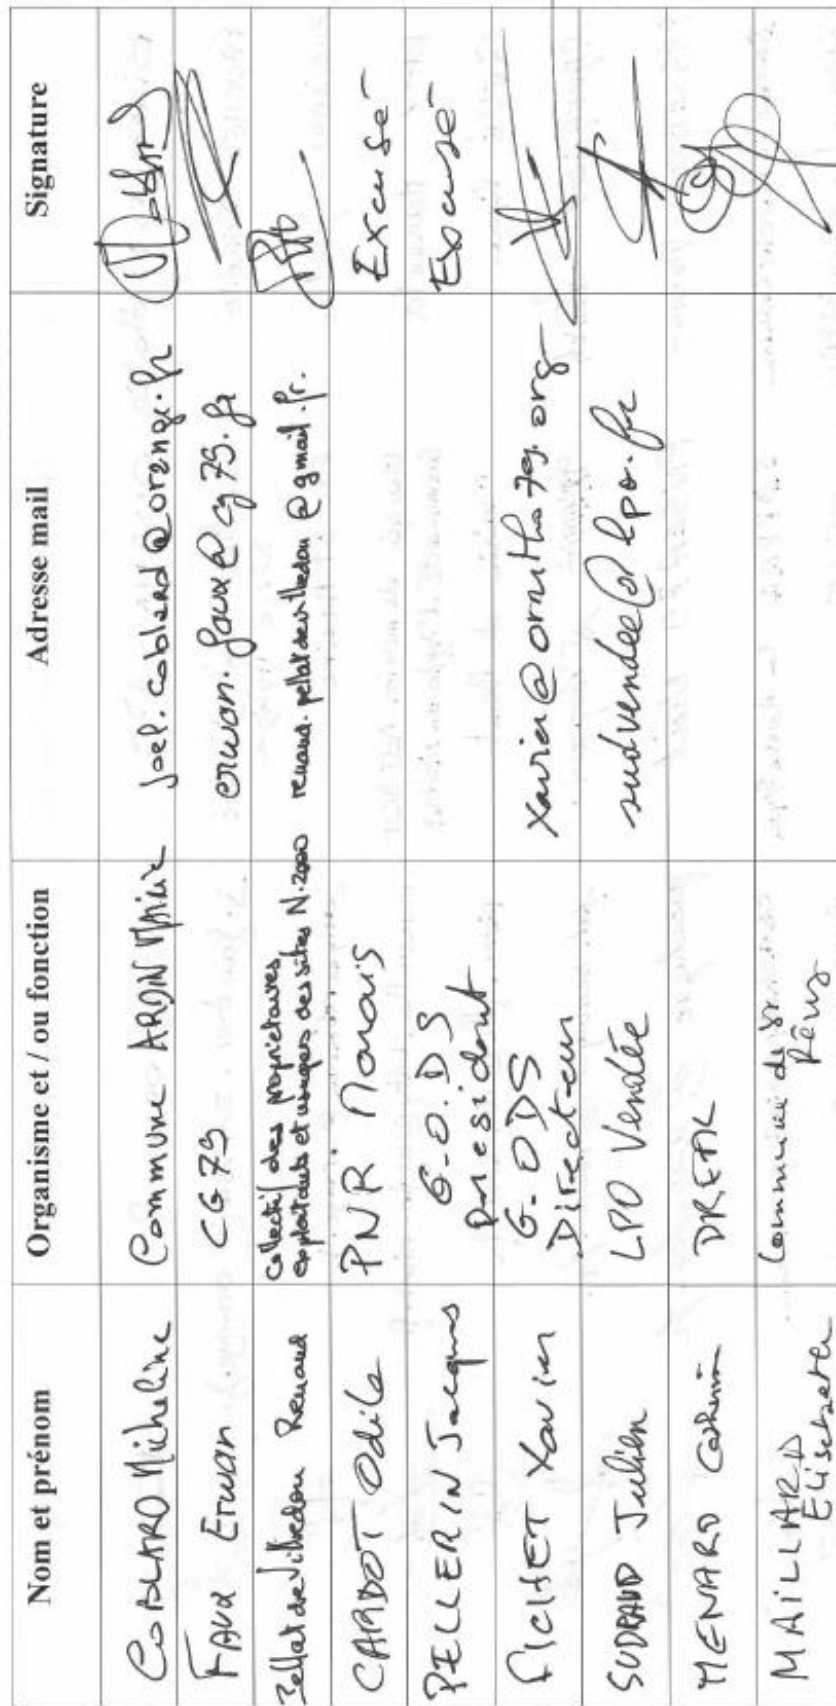 Nom et prénom Organisme et / ou fonction Adresse mail Signature
COBLARD Micheline Commune ARDIN Mairie joel.coblard@orange.fr
FAUX Erwan CG79 erwan.faux@cg79.fr
Pellat de Villedon Renaud Collectif des propriétaires
exploitants et usagers des sites N.2000 renaud.pellatdevilledon@gmail.fr.
CARDOT Odile PNR Marais Excusé
PELLERIN Jacques G.O.D.S
président Excusé
FICHET Xavier G.ODS
Directeur xavier@ornitho79.org
SUDRAUD Julien LPO Vendée sudvendee@lpo.fr
MENARD Catherine DREAL
MAILLARD
Elisabeth Commune de St